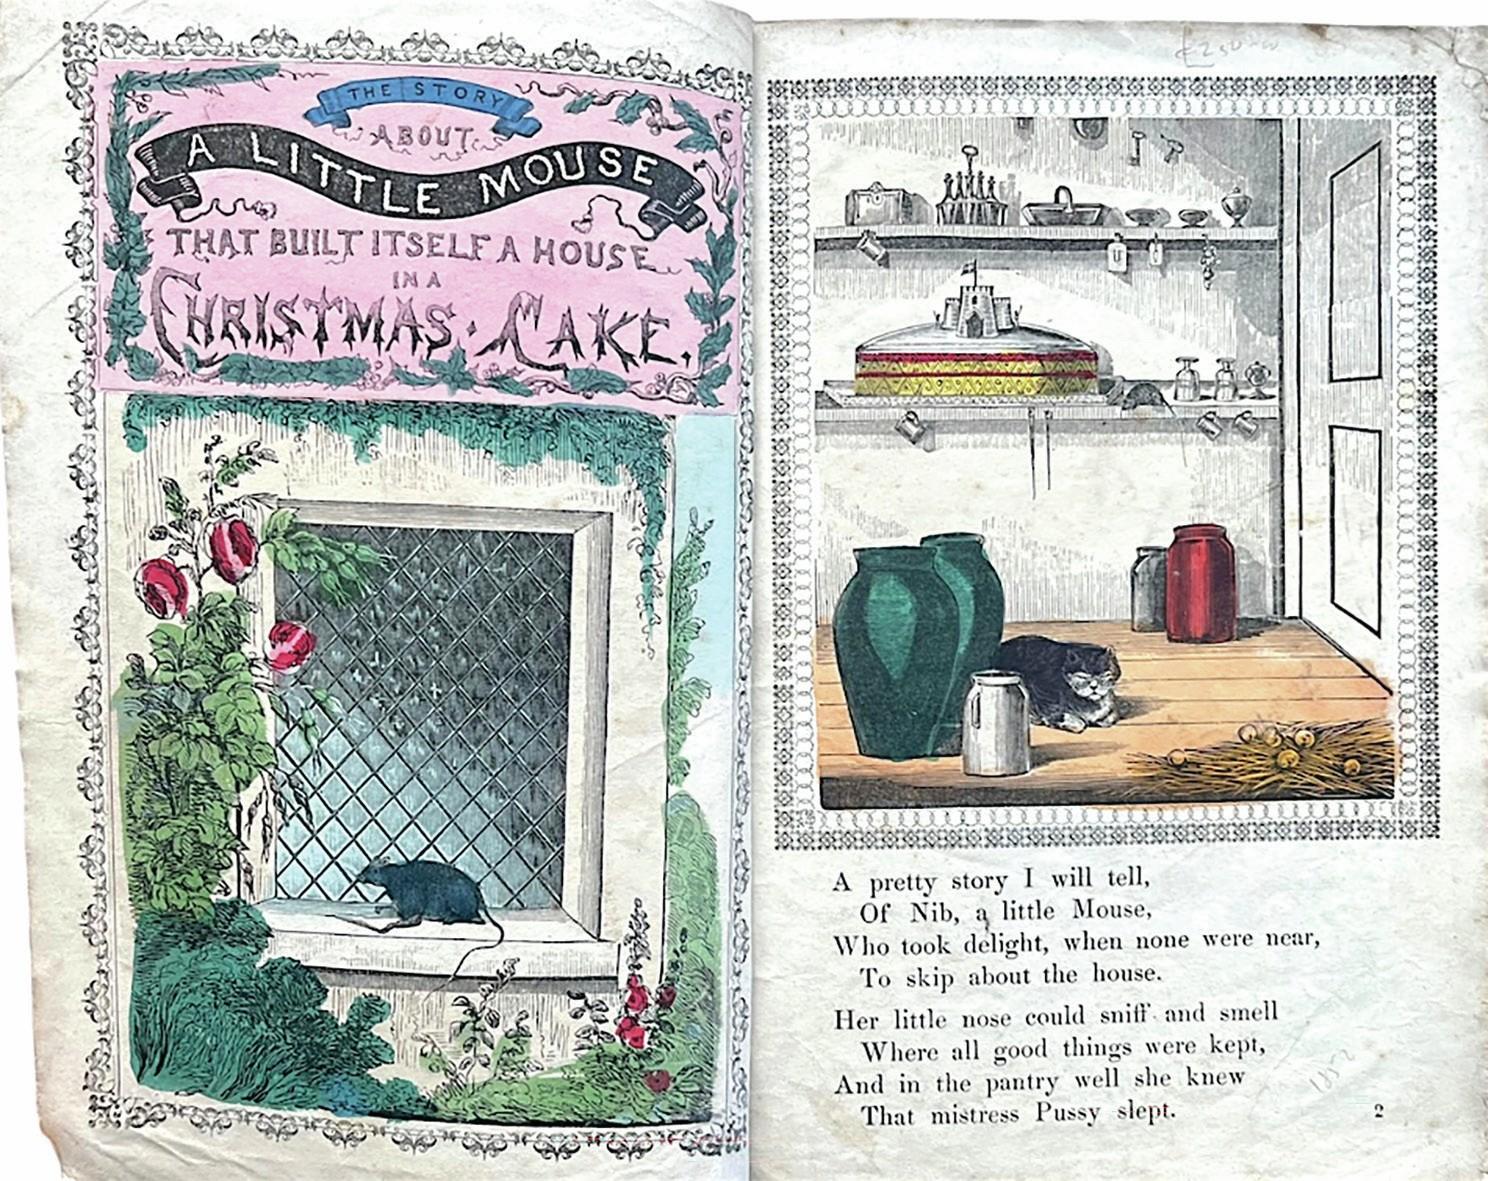 THE STORY
ABOUT
A LITTLE MOUSE
THAT BUILT ITSELF A HOUSE
IN A
CHRISTMAS CAKE.
A pretty story I will tell,
Of Nib, a little Mouse,
Who took delight, when none were near,
To skip about the house.
Her little nose could sniff and smell
Where all good things were kept,
And in the pantry well she knew
That mistress Pussy slept.
2